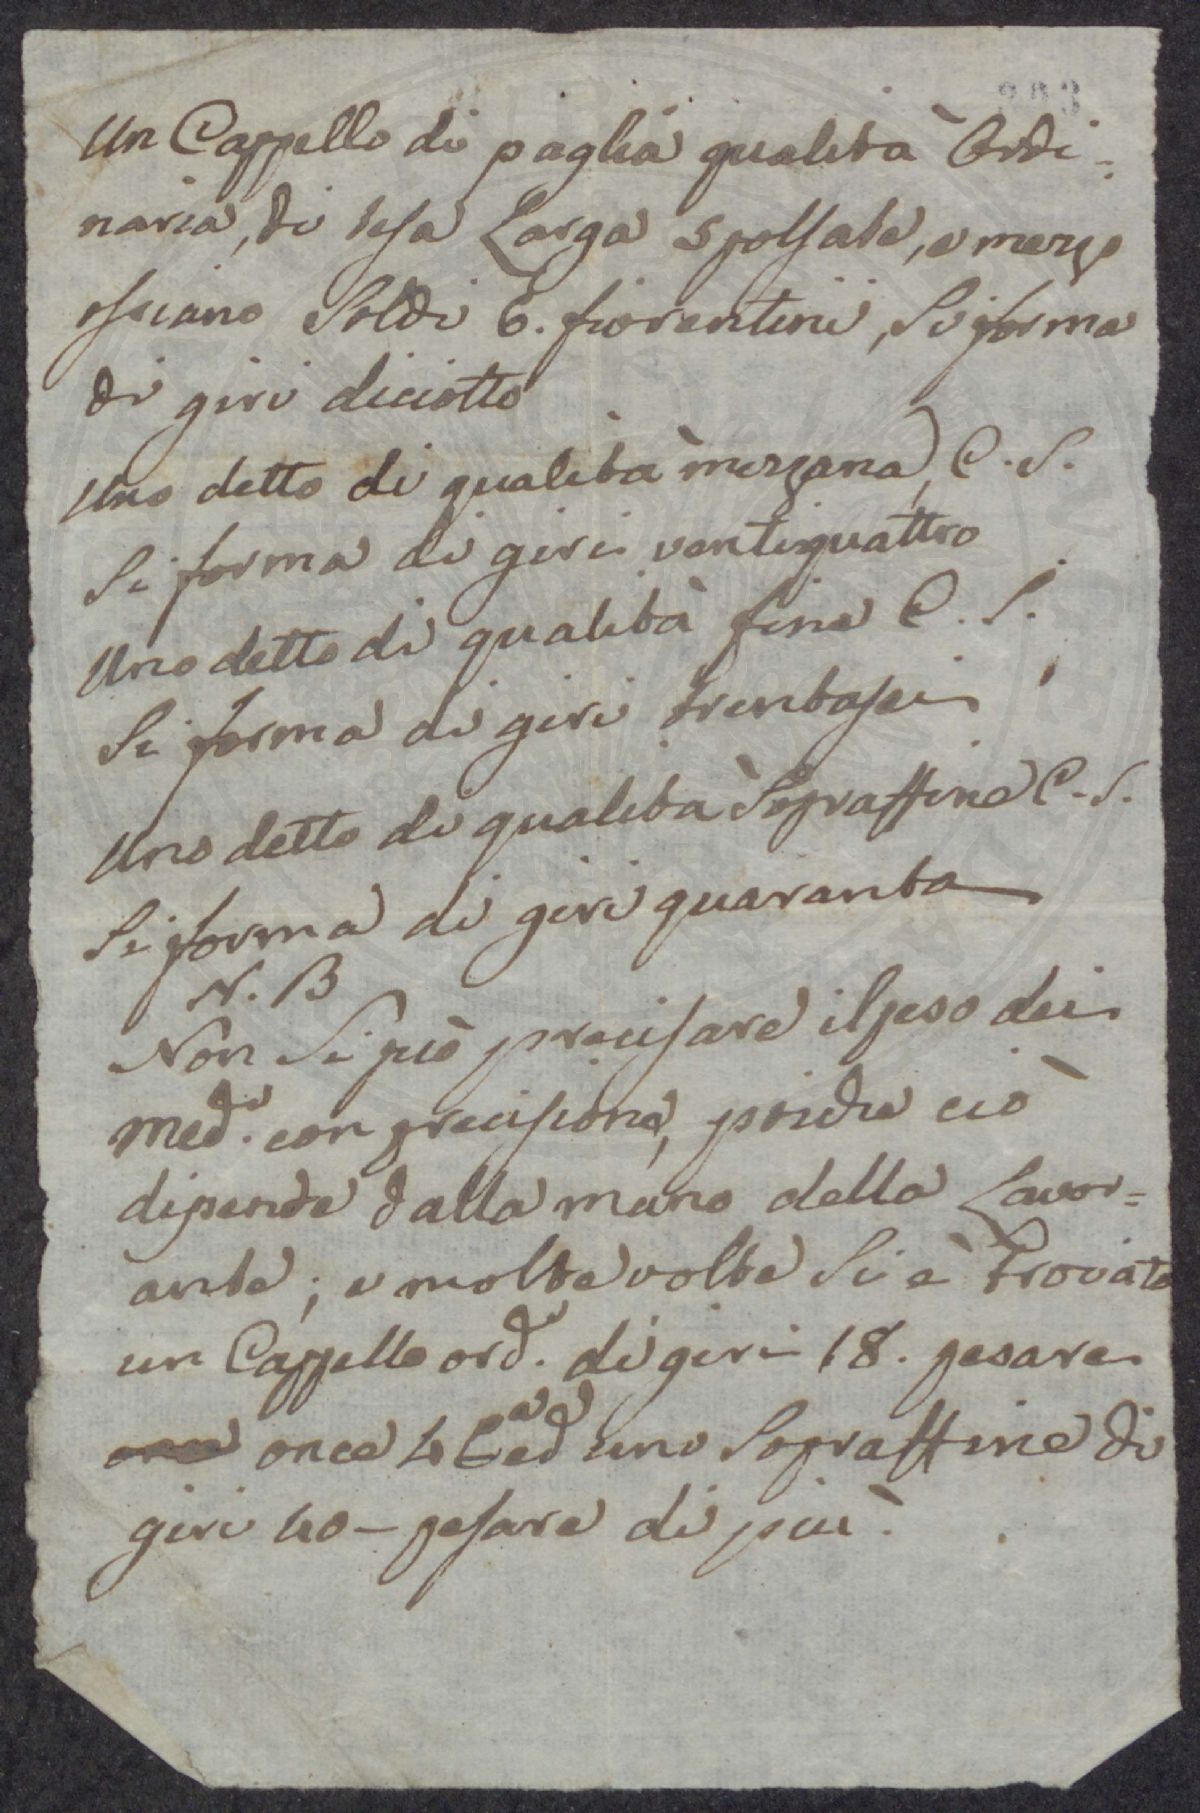 Un Cappello di paglia qualità Ordi=
naria, di tesa Larga 5 polsate, e mezzo
ossiano Soldi 6. fiorentini, Si forma
di giri diciotto
Uno detto di qualità mezzana, C. S.
Si forma di giri ventiquattro
Uno detto di qualità fine C. S.
Si forma di giri trentasei
Uno detto di qualità Sopraffine C. S.
Si forma di giri quaranta
N. B
Non Si può precisare il peso dei
med.i con precisione, poiche ciò
dipende dalla mano della Lavor=
ante; e molte volte Si è trovato
un Cappello ord.o di giri 18. pesare
once once 4 ed uno Sopraffine di
giri 40 - pesare di più.